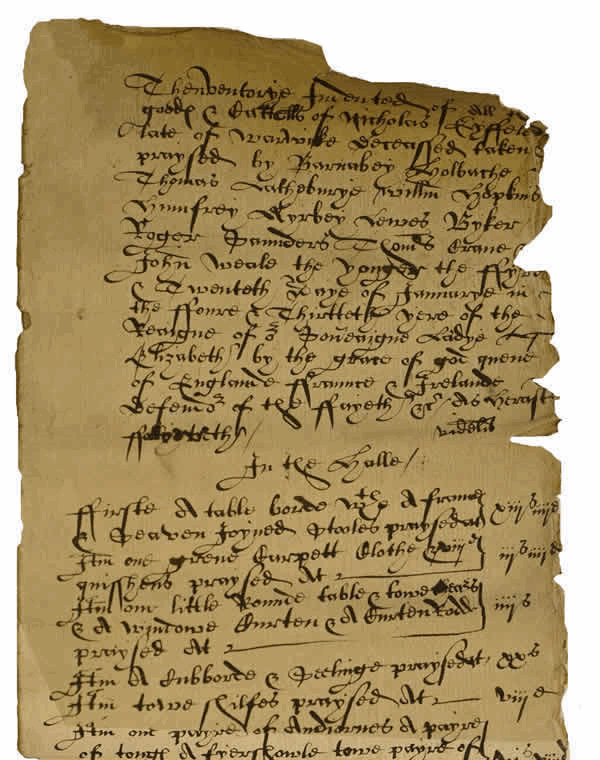 Thenventorye Indented of All
goods & Cattells of Nicholas Eyffeler
late of Warwike deceassed taken &
praysed by Barnabey Holbache
Thomas Latheburye Willm Hopkins
Humfrey Ayrbey Lewes Byker
Roger Saunders Thoms Crane &
John Weale the yonger the ffyve
& Twenteth Daye of Januarye in
the ffoure & Thirtteth yere of the
Reaigne of or Soveaigne Ladye
Elizabeth by the grace of god quene
of Englande ffraunce & Irelande
Defendor of the ffayeth &c As Herafter
videlit
In the Halle /
ffirste A table borde wth A frame
& Seaven Joyned Stooles praysed at xiijs iiijd
Itm one grene Carpett Clothe & viij
quisshens praysed At iijs iiijd
Itm one little Rounde table & towe
& A Windowe Curten & A Curten Rodd iiijs
praysed At
Itm A Cubborde & Seelinge praysed at xxs
Itm towe shilfes praysed At viijd
Itm one payre of Andiornes A payre
of tongs A fyershowle towe payre of